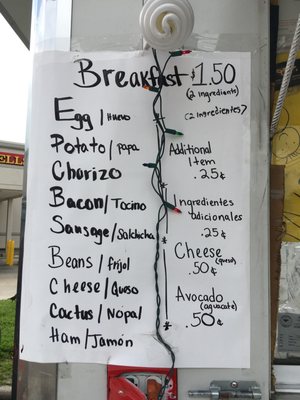 Breakfast $1.50
(2 Ingredients)
(2 ingredientes)
Egg / Huevo
Potato / Papa
Chorizo
Bacon / Tocino
Sausage / Salchicha
Beans / frijol
Cheese / Queso
Cactus / Nopal
Ham / Jamón
Additional
Item
.25¢
Ingredientes
adicionales
.25¢
Cheese
(queso)
.50¢
Avocado
(aguacate)
.50¢